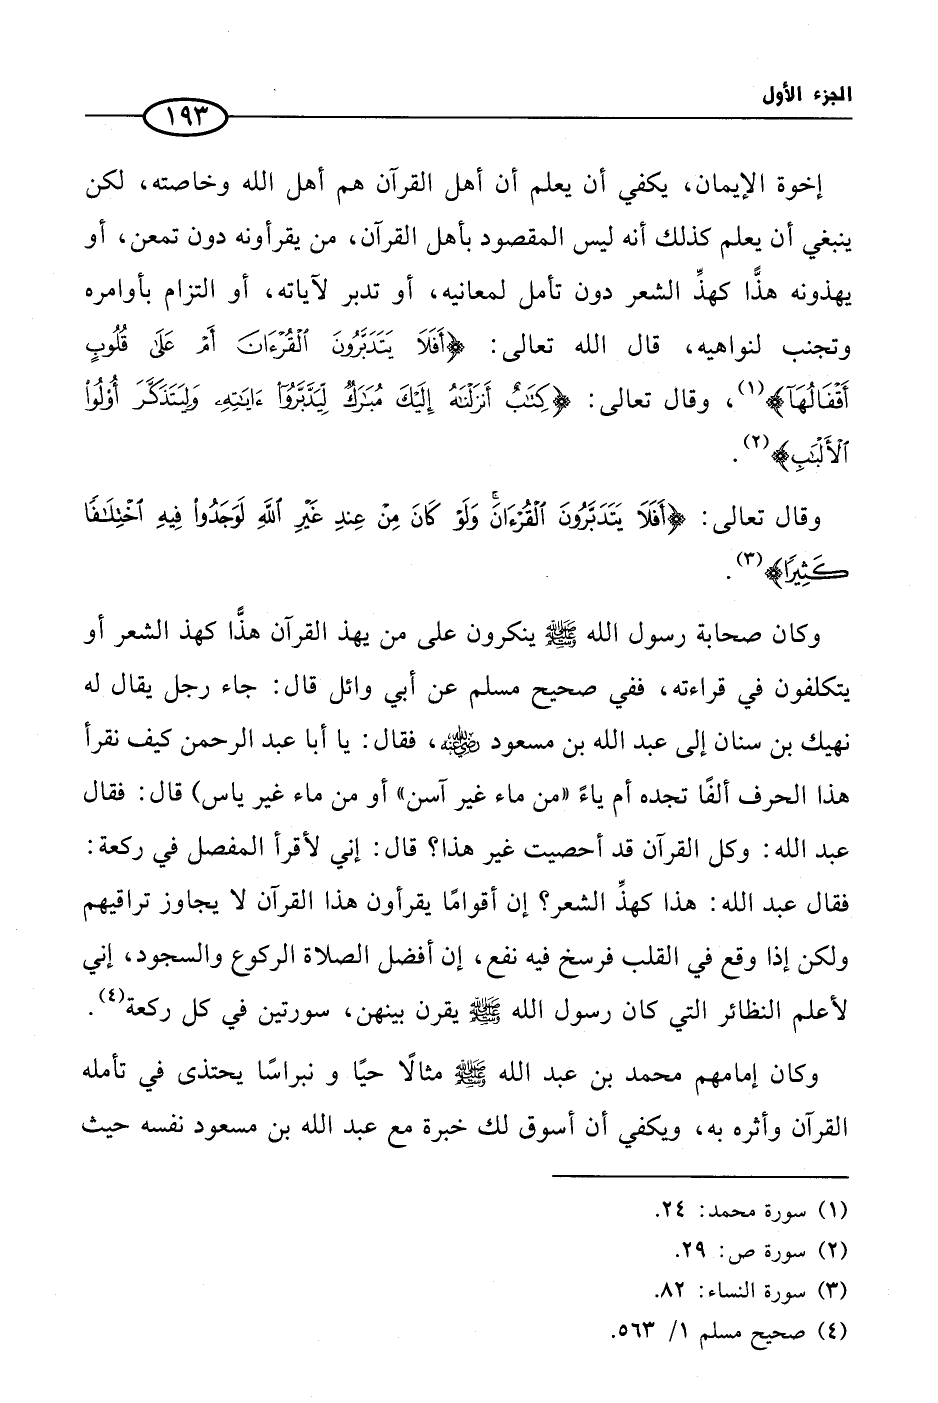 الجزء الأول
١٩٣
إخوة الإيمان، يكفي أن يعلم أن أهل القرآن هم أهل الله وخاصته، لكن
ينبغي أن يعلم كذلك أنه ليس المقصود بأهل القرآن، من يقرأونه دون تمعن، أو
يهذونه هذًّا كهذِّ الشعر دون تأمل لمعانيه، أو تدبر لآياته، أو التزام بأوامره
وتجنب لنواهيه، قال الله تعالى: ﴿أَفَلَا يَتَدَبَّرُونَ الْقُرْءَانَ أَمْ عَلَىٰ قُلُوبٍ
أَقْفَالُهَآ﴾(١)، وقال تعالى: ﴿كِتَٰبٌ أَنزَلْنَٰهُ إِلَيْكَ مُبَٰرَكٌ لِّيَدَّبَّرُوٓا۟ ءَايَٰتِهِۦ وَلِيَتَذَكَّرَ أُو۟لُوا۟
الْأَلْبَٰبِ﴾(٢).
وقال تعالى: ﴿أَفَلَا يَتَدَبَّرُونَ الْقُرْءَانَۚ وَلَوْ كَانَ مِنْ عِندِ غَيْرِ اللَّهِ لَوَجَدُوا۟ فِيهِ اخْتِلَٰفًا
كَثِيرًا﴾(٣).
وكان صحابة رسول الله ﷺ ينكرون على من يهذ القرآن هذًّا كهذ الشعر أو
يتكلفون في قراءته، ففي صحيح مسلم عن أبي وائل قال: جاء رجل يقال له
نهيك بن سنان إلى عبد الله بن مسعود رضي الله عنه، فقال: يا أبا عبد الرحمن كيف نقرأ
هذا الحرف ألفًا تجده أم ياءً «من ماء غير آسن» أو من ماء غير ياس) قال: فقال
عبد الله: وكل القرآن قد أحصيت غير هذا؟ قال: إني لأقرأ المفصل في ركعة:
فقال عبد الله: هذا كهذِّ الشعر؟ إن أقوامًا يقرأون هذا القرآن لا يجاوز تراقيهم
ولكن إذا وقع في القلب فرسخ فيه نفع، إن أفضل الصلاة الركوع والسجود، إني
لأعلم النظائر التي كان رسول الله ﷺ يقرن بينهن، سورتين في كل ركعة(٤).
وكان إمامهم محمد بن عبد الله ﷺ مثالًا حيًّا و نبراسًا يحتذى في تأمله
القرآن وأثره به، ويكفي أن أسوق لك خبرة مع عبد الله بن مسعود نفسه حيث
(١) سورة محمد: ٢٤.
(٢) سورة ص: ٢٩.
(٣) سورة النساء: ٨٢.
(٤) صحيح مسلم ١/ ٥٦٣.